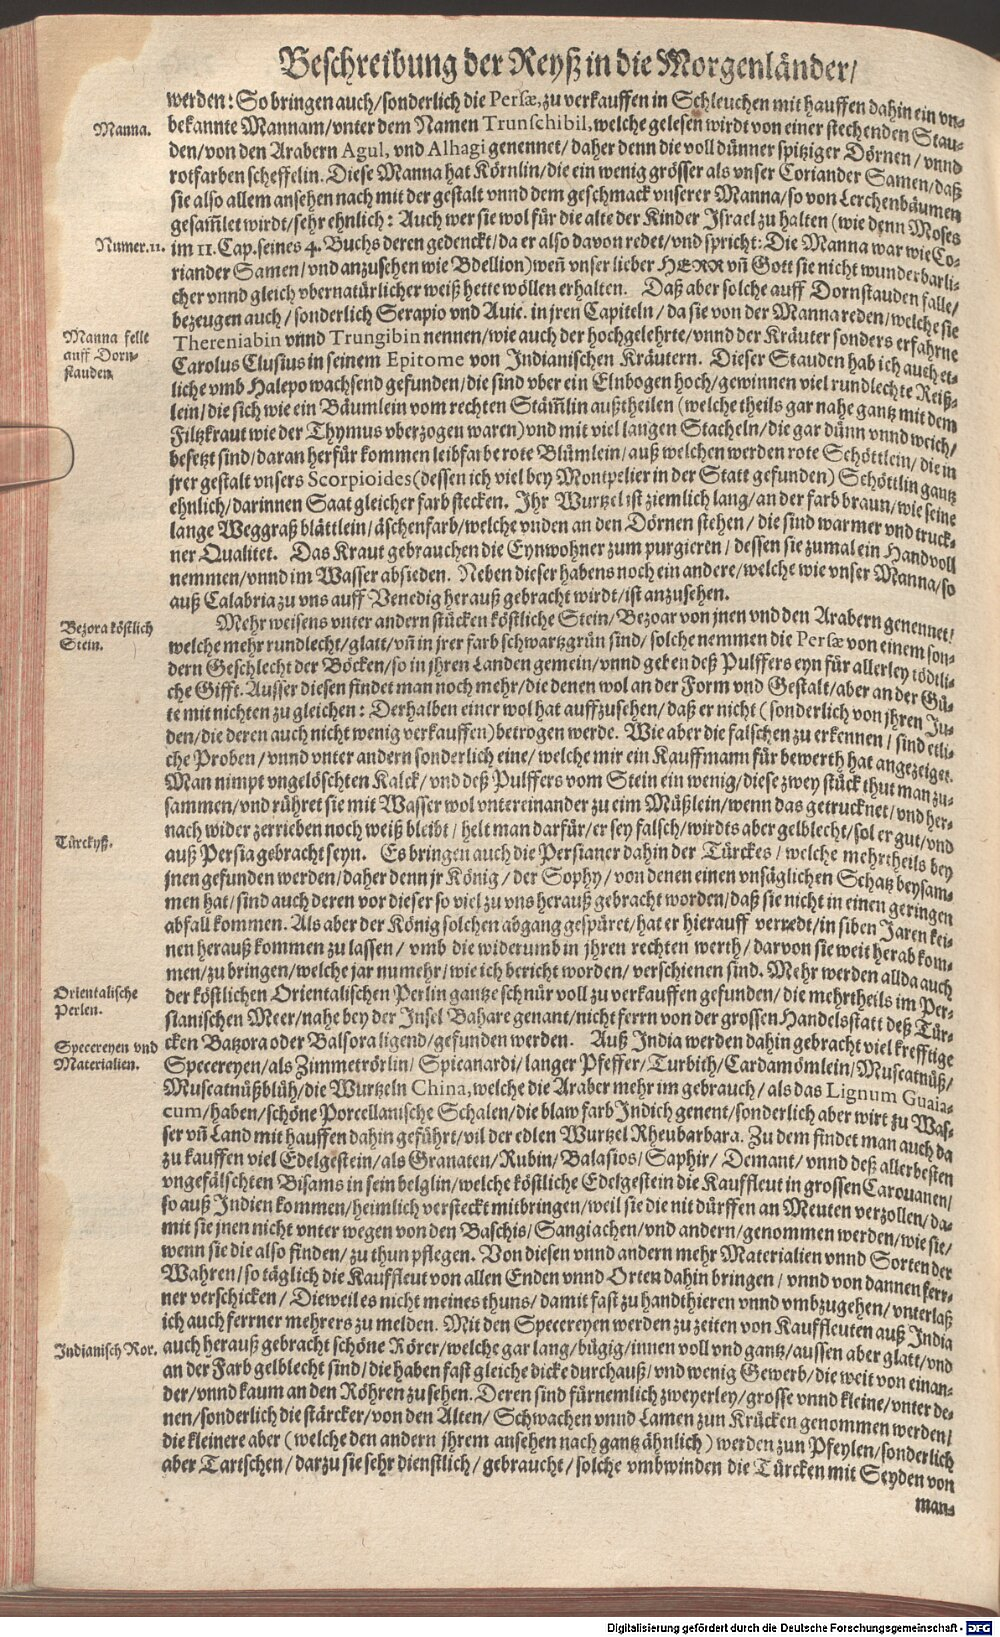 Beschreibung der Reyß in die Morgenländer/
werden: So bringen auch/sonderlich die Persæ, zu verkauffen in Schleuchen mit hauffen dahin ein vn-
Manna.
bekannte Mannam/vnter dem Namen Trunschibil, welche gelesen wirdt von einer stechenden Stau-
den/von den Arabern Agul, vnd Alhagi genennet/daher denn die voll dünner spitziger Dörnen/vnnd
rotfarben scheffelin. Diese Manna hat Körnlin/die ein wenig grösser als vnser Coriander Samen/daß
sie also allem ansehen nach mit der gestalt vnnd dem geschmack vnserer Manna/so von Lerchenbäumen
gesam̃let wirdt/sehr ehnlich: Auch wer sie wol für die alte der Kinder Israel zu halten (wie denn Moses
Numer. 11.
im 11. Cap. seines 4. Buchs deren gedenckt/da er also davon redet/vnd spricht: Die Manna war wie Co-
riander Samen/vnd anzusehen wie Bdellion) weñ vnser lieber HERR vñ Gott sie nicht wunderbarli-
cher vnnd gleich vbernatürlicher weiß hette wöllen erhalten. Daß aber solche auff Dornstauden falle/
bezeugen auch/sonderlich Serapio vnd Auic. in jren Capiteln/da sie von der Manna reden/welche sie
Manna felle
auff Dorn-
stauden.
Thereniabin vnnd Trungibin nennen/wie auch der hochgelehrte/vnnd der Kräuter sonders erfahrne
Carolus Clusius in seinem Epitome von Indianischen Kräutern. Dieser Stauden hab ich auch et-
liche vmb Halepo wachsend gefunden/die sind vber ein Elnbogen hoch/gewinnen viel rundlechte Reiß-
lein/die sich wie ein Bäumlein vom rechten Stäm̃lin außtheilen (welche theils gar nahe gantz mit dem
Filtzkraut wie der Thymus vberzogen waren) vnd mit viel langen Stacheln/die gar dünn vnnd weich/
besetzt sind/daran herfür kommen leibfarbe rote Blümlein/auß welchen werden rote Schöttlein/die in
jrer gestalt vnsers Scorpioides (dessen ich viel bey Montpelier in der Statt gefunden) Schöttlin gantz
ehnlich/darinnen Saat gleicher farb stecken. Ihr Wurtzel ist ziemlich lang/an der farb braun/wie seine
lange Weggraß blättlein/äschenfarb/welche vnden an den Dörnen stehen/die sind warmer vnd truck-
ner Qualitet. Das Kraut gebrauchen die Eynwohner zum purgieren/dessen sie zumal ein Handvoll
nemmen/vnnd im Wasser absieden. Neben dieser habens noch ein andere/welche wie vnser Manna/so
auß Calabria zu vns auff Venedig herauß gebracht wirdt/ist anzusehen.
Bezora köstlich
Stein.
Mehr weisens vnter andern stücken köstliche Stein/Bezoar von jnen vnd den Arabern genennet/
welche mehr rundlecht/glatt/vñ in jrer farb schwartzgrün sind/solche nemmen die Persæ von einem son-
dern Geschlecht der Böcken/so in jhren Landen gemein/vnnd geben deß Pulffers eyn für allerley tödtli-
che Gifft. Ausser diesen findet man noch mehr/die denen wol an der Form vnd Gestalt/aber an der Gü-
te mit nichten zu gleichen: Derhalben einer wol hat auffzusehen/daß er nicht (sonderlich von jhren Ju-
den/die deren auch nicht wenig verkauffen) betrogen werde. Wie aber die falschen zu erkennen/sind etli-
che Proben/vnnd vnter andern sonderlich eine/welche mir ein Kauffmann für bewerth hat angezeiget.
Man nimpt vngelöschten Kalck/vnd deß Pulffers vom Stein ein wenig/diese zwey stück thut man zu-
sammen/vnd rühret sie mit Wasser wol vntereinander zu eim Müßlein/wenn das getrucknet/vnd her-
nach wider zerrieben noch weiß bleibt/helt man darfür/er sey falsch/wirdts aber gelblecht/sol er gut/vnd
Türckyß.
auß Persia gebracht seyn. Es bringen auch die Persianer dahin der Türckes/welche mehrtheils bey
jnen gefunden werden/daher denn jr König/der Sophy/von denen einen vnsäglichen Schatz beysam-
men hat/sind auch deren vor dieser so viel zu vns herauß gebracht worden/daß sie nicht in einen geringen
abfall kommen. Als aber der König solchen abgang gespüret/hat er hierauff verredt/in siben Jaren kei-
nen herauß kommen zu lassen/vmb die widerumb in jhren rechten werth/darvon sie weit herab kom-
men/zu bringen/welche jar numehr/wie ich bericht worden/verschienen sind. Mehr werden allda auch
Orientalische
Perlen.
der köstlichen Orientalischen Perlin gantze schnür voll zu verkauffen gefunden/die mehrtheils im Per-
sianischen Meer/nahe bey der Insel Bahare genant/nicht ferrn von der grossen Handelsstatt deß Tür-
Specereyen vnd
Materialien.
cken Batzora oder Balsora ligend/gefunden werden. Auß India werden dahin gebracht viel krefftige
Specereyen/als Zimmetrörlin/Spicanardi/langer Pfeffer/Turbith/Cardamömlein/Muscatnüß/
Muscatnüßblüh/die Wurtzeln China, welche die Araber mehr im gebrauch/als das Lignum Guaia-
cum/haben/schöne Porcellanische Schalen/die blaw farb Indich genent/sonderlich aber wirt zu Was-
ser vñ Land mit hauffen dahin geführt/vil der edlen Wurtzel Rheubarbara. Zu dem findet man auch da
zu kauffen viel Edelgestein/als Granaten/Rubin/Balasios/Saphir/Demant/vnnd deß allerbesten
vngefälschten Bisams in sein belglin/welche köstliche Edelgestein die Kauffleut in grossen Carouanen/
so auß Indien kommen/heimlich versteckt mitbringen/weil sie die nit dürffen an Meuten verzollen/da-
mit sie jnen nicht vnter wegen von den Baschis/Sangiachen/vnd andern/genommen werden/wie sie/
wenn sie die also finden/zu thun pflegen. Von diesen vnnd andern mehr Materialien vnnd Sorten der
Wahren/so täglich die Kauffleut von allen Enden vnnd Orten dahin bringen/vnnd von dannen ferr-
ner verschicken/Dieweil es nicht meines thuns/damit fast zu handthieren vnnd vmbzugehen/vnterlaß
ich auch ferrner mehrers zu melden. Mit den Specereyen werden zu zeiten von Kauffleuten auß India
Indianisch Ror.
auch herauß gebracht schöne Rörer/welche gar lang/bügig/innen voll vnd gantz/aussen aber glatt/vnd
an der Farb gelblecht sind/die haben fast gleiche dicke durchauß/vnd wenig Gewerb/die weit von einan-
der/vnnd kaum an den Röhren zu sehen. Deren sind fürnemlich zweyerley/grosse vnnd kleine/vnter de-
nen/sonderlich die stärcker/von den Alten/Schwachen vnnd Lamen zun Krücken genommen werden/
die kleinere aber (welche den andern jhrem ansehen nach gantz ähnlich) werden zun Pfeylen/sonderlich
aber Tartschen/darzu sie sehr dienstlich/gebraucht/solche vmbwinden die Türcken mit Seyden von
man-
Digitalisierung gefördert durch die Deutsche Forschungsgemeinschaft - DFG